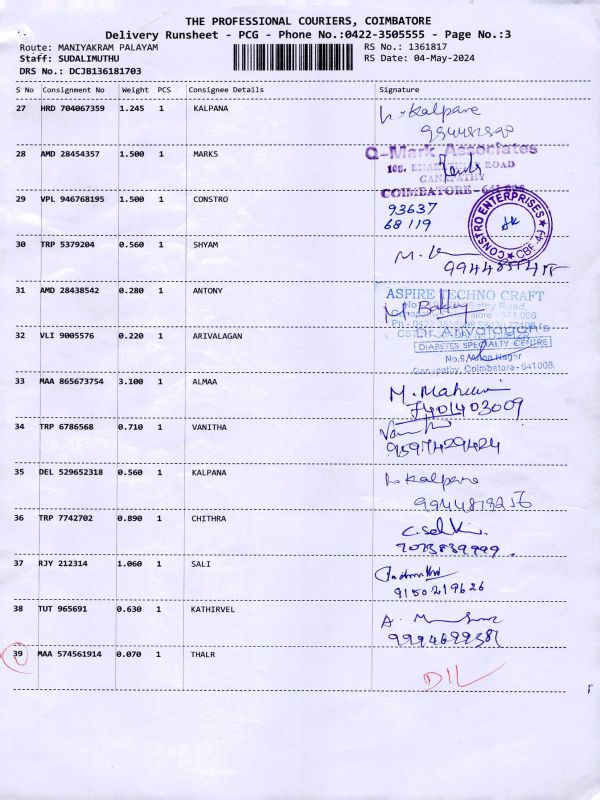 THE PROFESSIONAL COURIERS, COIMBATORE
Delivery Runsheet - PCG - Phone No.:0422-3505555 - Page No.:3
Route: MANIYAKRAM PALAYAM RS No.: 1361817
Staff: SUDALIMUTHU RS Date: 04-May-2024
DRS No.: DCJB136181703
S No Consignment No Weight PCS Consignee Details Signature
27 HRD 704067359 1.245 1 KALPANA
Kalpana
28 AMD 28454357 1.500 1 MARKS
Q-Mark Associates
ROAD
GANAPATHY
COIMBATORE - 641 006
29 VPL 946768195 1.500 1 CONSTRO
93637
68119
CONSTRO ENTERPRISES
30 TRP 5379204 0.560 1 SHYAM
31 AMD 28438542 0.280 1 ANTONY
ASPIRE TECHNO CRAFT
Sathy Road,
641 006
32 VLI 9005576 0.220 1 ARIVALAGAN
DIABETES SPECIALTY CENTRE
No.9, Anna Nagar
Ganapathy, Coimbatore-641006.
33 MAA 865673754 3.100 1 ALMAA
7401403009
34 TRP 6786568 0.710 1 VANITHA
9597429424
35 DEL 529652318 0.560 1 KALPANA
Kalpana
36 TRP 7742702 0.890 1 CHITHRA
37 RJY 212314 1.060 1 SALI
9150219626
38 TUT 965691 0.630 1 KATHIRVEL
39 MAA 574561914 0.070 1 THALR
D/L